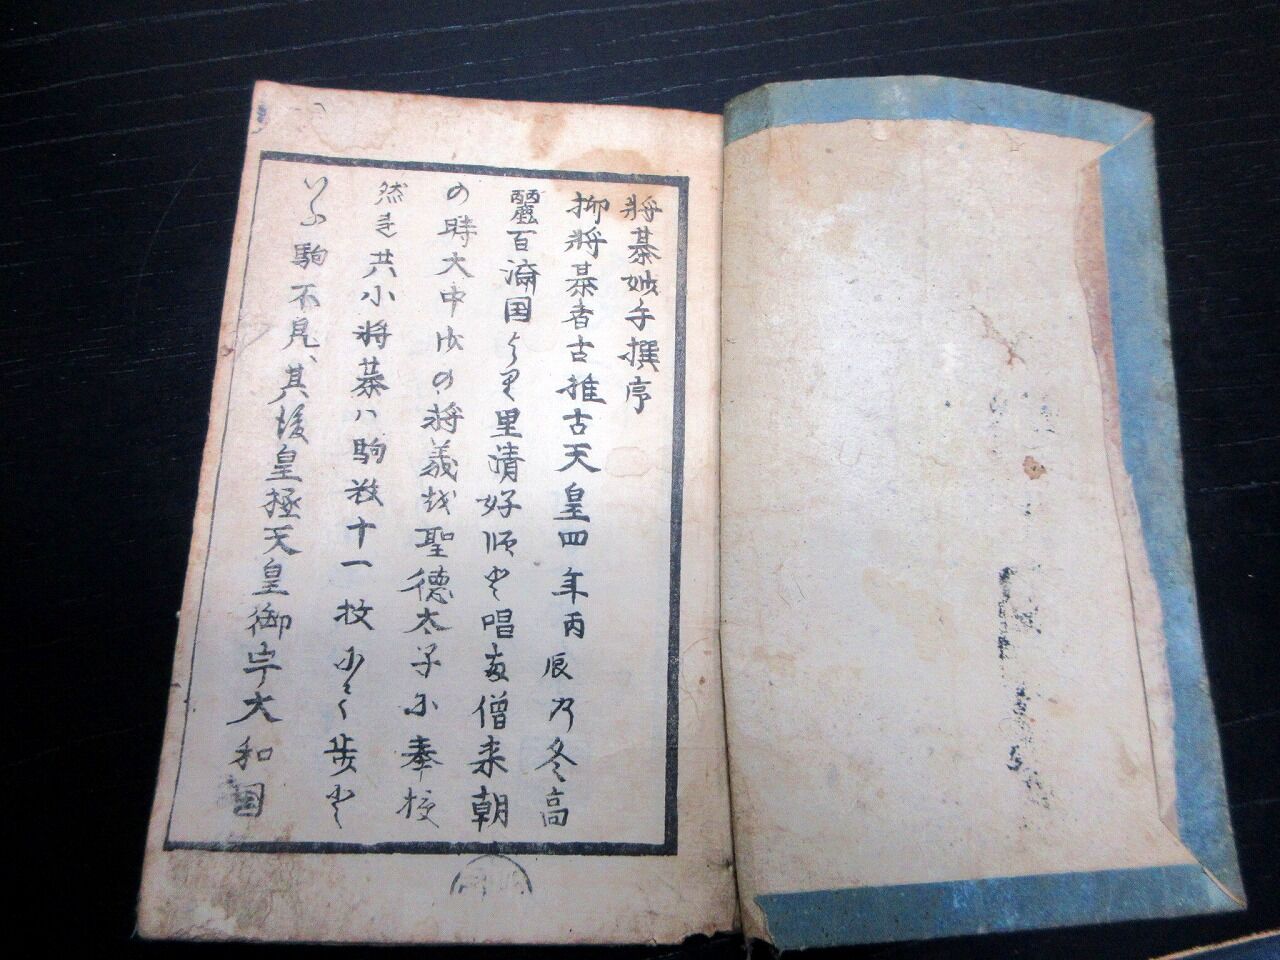 将棊妙手撰序
抑将棊者古推古天皇四年丙辰乃冬高
麗百済国より里清好順と唱両僧来朝
の時大中小の将義越聖徳太子に奉授
然き共小将棊ハ駒数十一枚少く歩と
いふ駒不見、其後皇極天皇御宇大和国